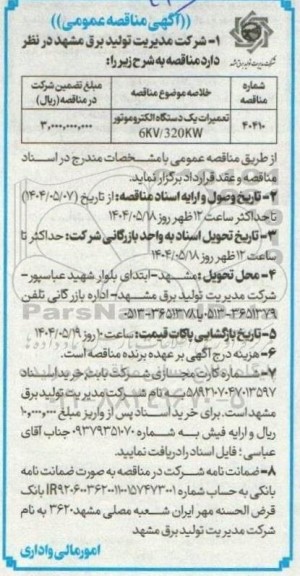 ((آگهی مناقصه عمومی))
شرکت مدیریت تولید برق مشهد
۱- شرکت مدیریت تولید برق مشهد در نظر
دارد مناقصه به شرح زیر را:
شماره مناقصه
خلاصه موضوع مناقصه
مبلغ تضمین شرکت در مناقصه (ریال)
۴۰۴۱۰
تعمیرات یک دستگاه الکتروموتور 6KV/320KW
۳,۰۰۰,۰۰۰,۰۰۰
از طریق مناقصه عمومی با مشخصات مندرج در اسناد
مناقصه و عقد قرارداد برگزار نماید.
۲- تاریخ وصول و ارایه اسناد مناقصه: از تاریخ (۱۴۰۴/۰۵/۰۷)
تا حداکثر ساعت ۱۲ ظهر روز ۱۴۰۴/۰۵/۱۸
۳- تاریخ تحویل اسناد به واحد بازرگانی شرکت: حداکثر تا
ساعت ۱۲ ظهر روز ۱۴۰۴/۰۵/۱۸
۴- محل تحویل: مشهد- ابتدای بلوار شهید عباسپور-
شرکت مدیریت تولید برق مشهد- اداره بازرگانی تلفن
۰۵۱۳-۳۶۵۱۳۷۹ یا ۰۵۱۳-۳۶۵۱۳۷۸
۵- تاریخ بازگشایی پاکات قیمت: ساعت ۱۰ روز ۱۴۰۴/۰۵/۱۹
۶- هزینه درج آگهی بر عهده برنده مناقصه است.
۷- شماره کارت مجازی شرکت بابت خرید اسناد
۵۸۹۲۱۰۷۰۴۷۰۱۳۵۹۷ به نام شرکت مدیریت تولید برق
مشهد است. برای خرید اسناد پس از واریز مبلغ ۱,۰۰۰,۰۰۰
ریال و ارایه فیش به شماره ۰۹۳۷۹۳۵۱۰۷۰ جناب آقای
عباسی؛ فایل اسناد را دریافت نمایید.
۸- ضمانت نامه شرکت در مناقصه به صورت ضمانت نامه
بانکی به حساب شماره IR۹۲۰۶۰۰۳۶۲۰۱۱۰۰۱۵۷۴۷۳۰۰۱ بانک
قرض الحسنه مهر ایران شعبه مصلی مشهد ۳۶۲۰ به نام
شرکت مدیریت تولید برق مشهد
امور مالی و اداری